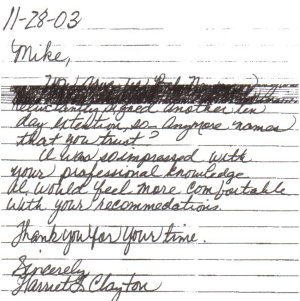 11-28-03
Mike,
reluctantly signed another ten
day extention, so - anymore names
that you trust?
I was so impressed with
your professional knowledge
I would feel more comfortable
with your recommedations.
Thank you for your time.
Sincerely
Harriet G Clayton